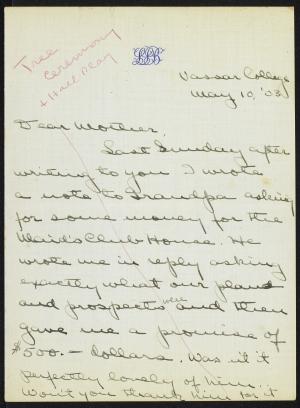 Tree
Ceremony
+ Hall Play
Vassar College
May 10, '03.
Dear Mother,
Last Sunday after
writing to you I wrote
a note to Grandpa asking
for some money for the
Maids Club House. He
wrote me in reply asking
exactly what our plans
and prospects were and then
gave me a promise of
$500.— dollars. Was it it
perfectly lovely of him.
Won't you thank him for it